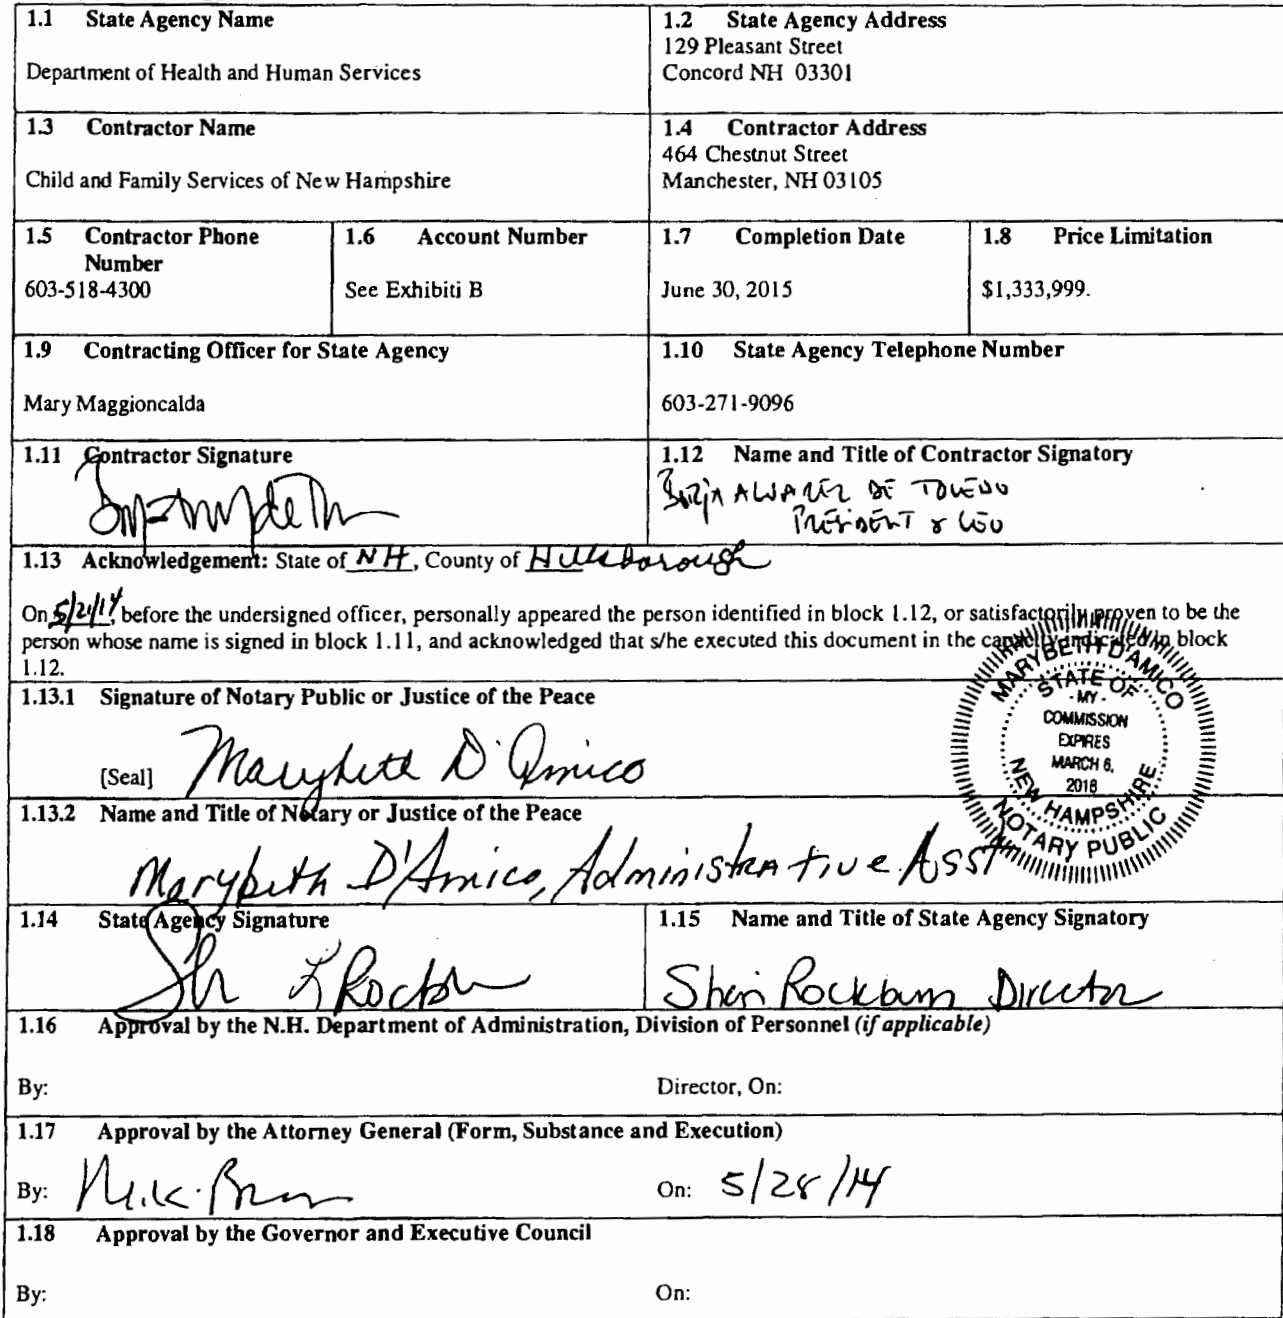 1.1 State Agency Name
Department of Health and Human Services
1.2 State Agency Address
129 Pleasant Street
Concord NH 03301
1.3 Contractor Name
Child and Family Services of New Hampshire
1.4 Contractor Address
464 Chestnut Street
Manchester, NH 03105
1.5 Contractor Phone
Number
603-518-4300
1.6 Account Number
See Exhibiti B
1.7 Completion Date
June 30, 2015
1.8 Price Limitation
$1,333,999.
1.9 Contracting Officer for State Agency
Mary Maggioncalda
1.10 State Agency Telephone Number
603-271-9096
1.11 Contractor Signature
1.12 Name and Title of Contractor Signatory
Borja ALVAREZ DE TOLEDO
PRESIDENT & CEO
1.13 Acknowledgement: State of NH, County of Hillsborough
On 5/21/14, before the undersigned officer, personally appeared the person identified in block 1.12, or satisfactorily proven to be the
person whose name is signed in block 1.11, and acknowledged that s/he executed this document in the capacity indicated in block
1.12.
1.13.1 Signature of Notary Public or Justice of the Peace
[Seal] Marybeth D'Amico
MARYBETH D'AMICO
STATE OF
- MY -
COMMISSION
EXPIRES
MARCH 6,
2018
NEW HAMPSHIRE
NOTARY PUBLIC
1.13.2 Name and Title of Notary or Justice of the Peace
Marybeth D'Amico, Administrative Asst
1.14 State Agency Signature
1.15 Name and Title of State Agency Signatory
Sheri Rockburn Director
1.16 Approval by the N.H. Department of Administration, Division of Personnel (if applicable)
By: Director, On:
1.17 Approval by the Attorney General (Form, Substance and Execution)
By: On: 5/28/14
1.18 Approval by the Governor and Executive Council
By: On: